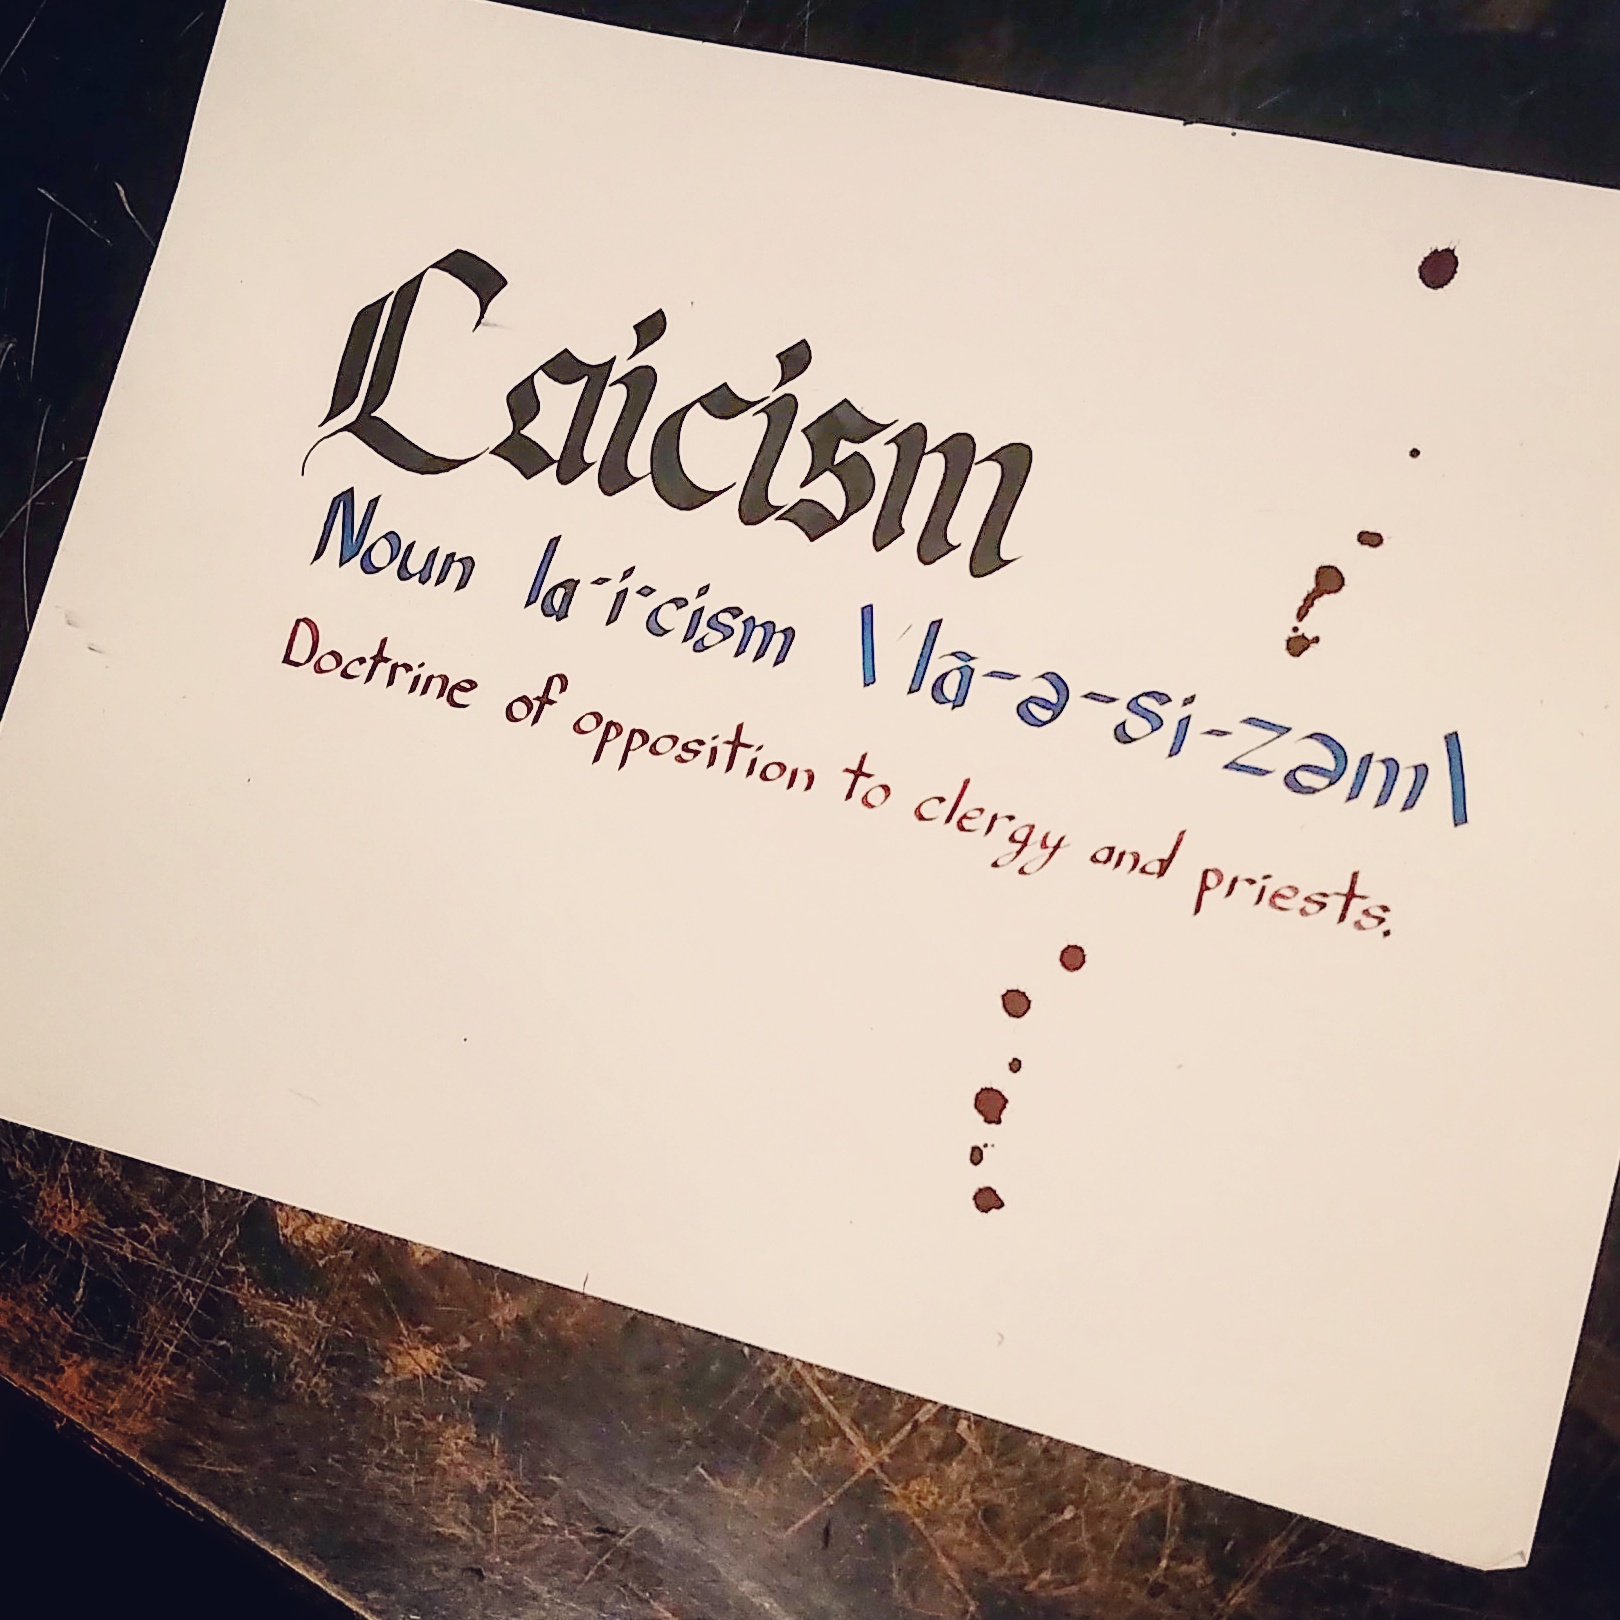 Laicism
Noun la-i-cism \ lā-ə-si-zəm\
Doctrine of opposition to clergy and priests.